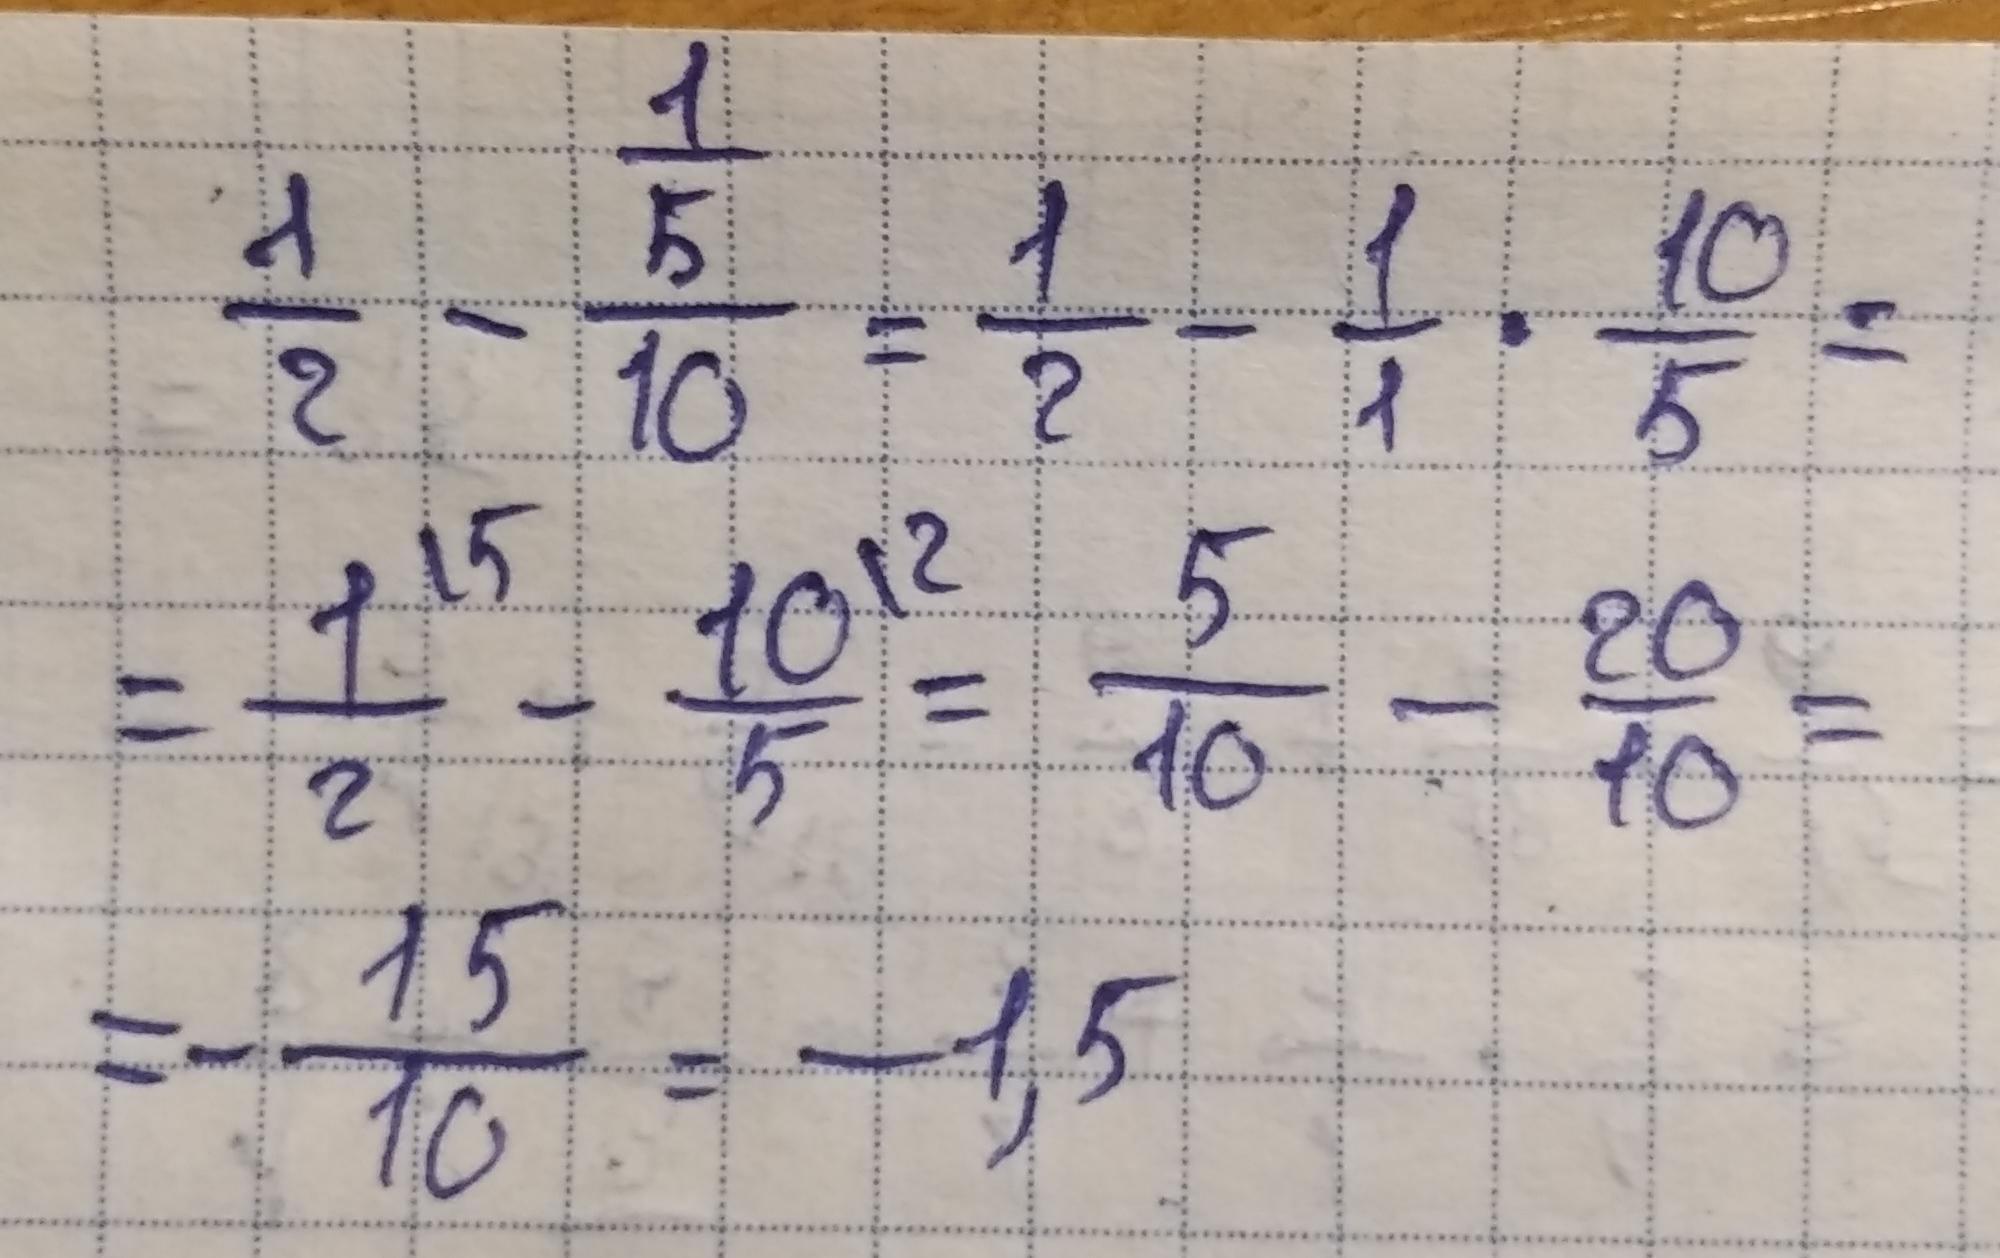 1/2 - (1/5)/10 = 1/2 - 1/1 · 10/5 =
= 1/2 \5 - 10/5 \2 = 5/10 - 20/10 =
= - 15/10 = - 1,5